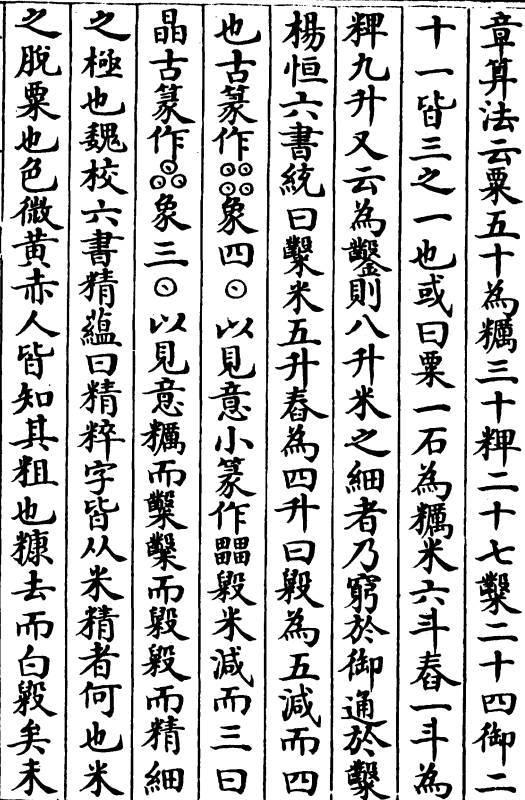 章算法云粟五十為糲三十粺二十七糳二十四御二
十一皆三之一也或曰粟一石為糲米六斗舂一斗為
粺九升又云為鑿則八升米之細者乃窮於御通於糳
楊恒六書統曰糳米五升舂為四升曰毇為五減而四
也古篆作象四⊙以見意小篆作毇米減而三曰
晶古篆作象三⊙以見意糲而糳糳而毇毇而精細
之極也魏校六書精蘊曰精粹字皆从米精者何也米
之脫粟也色微黃赤人皆知其粗也糠去而白毇矣未